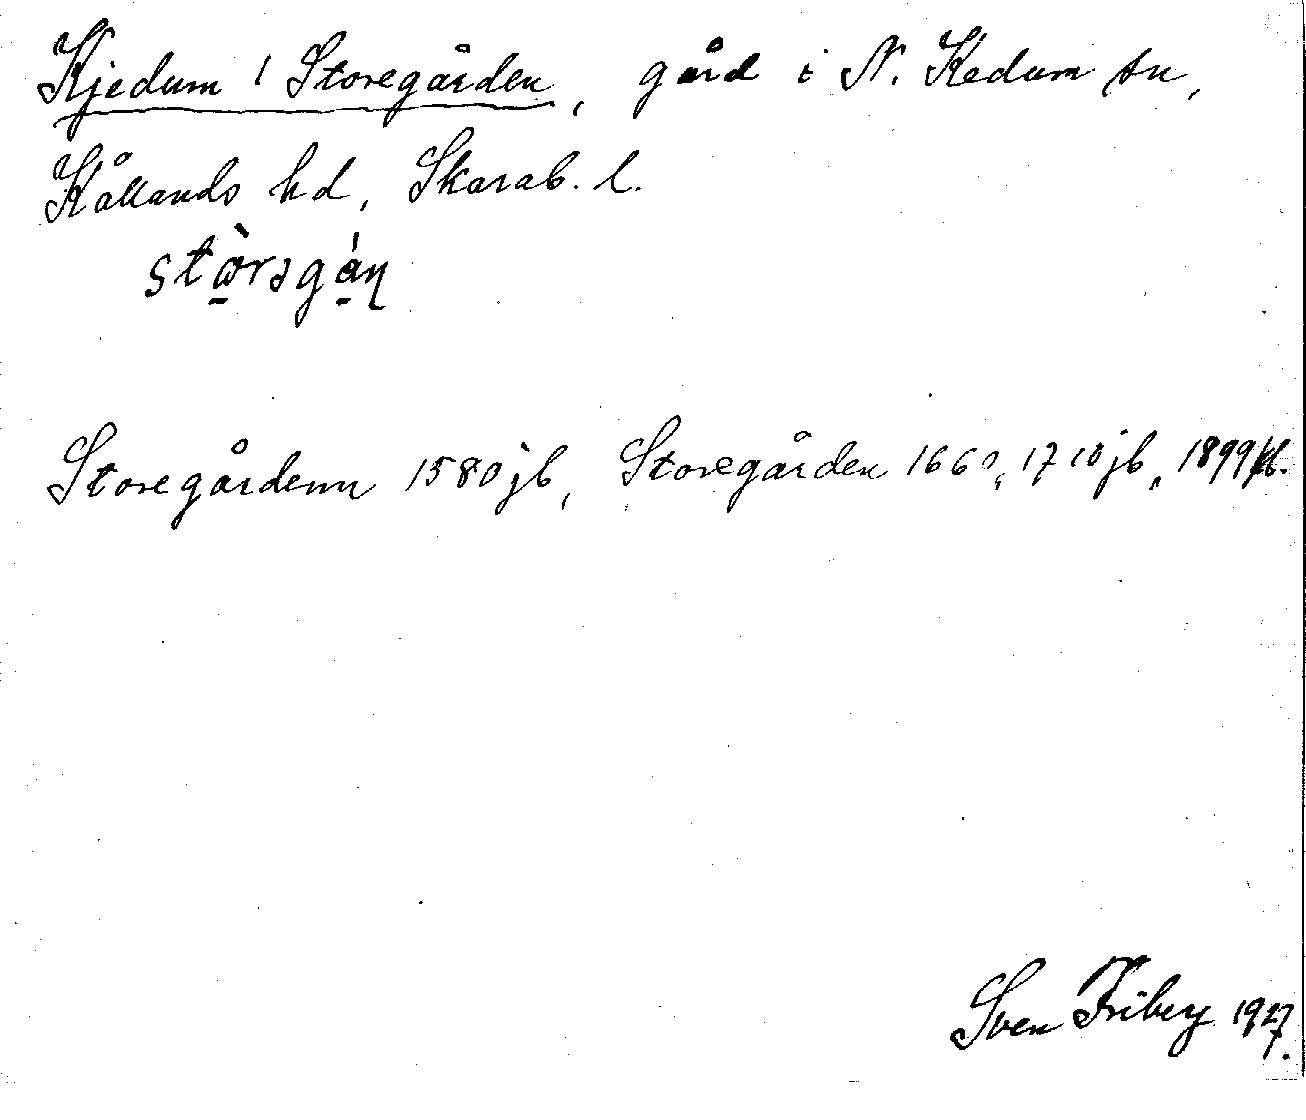 Kjedum 1 Storegården, gård i N. Kedum sn,
Kållands hd, Skarab. l.
Storegårdenn 1580 jb, Storegården 1660, 1710 jb, 1899
Sven Friberg 1927.